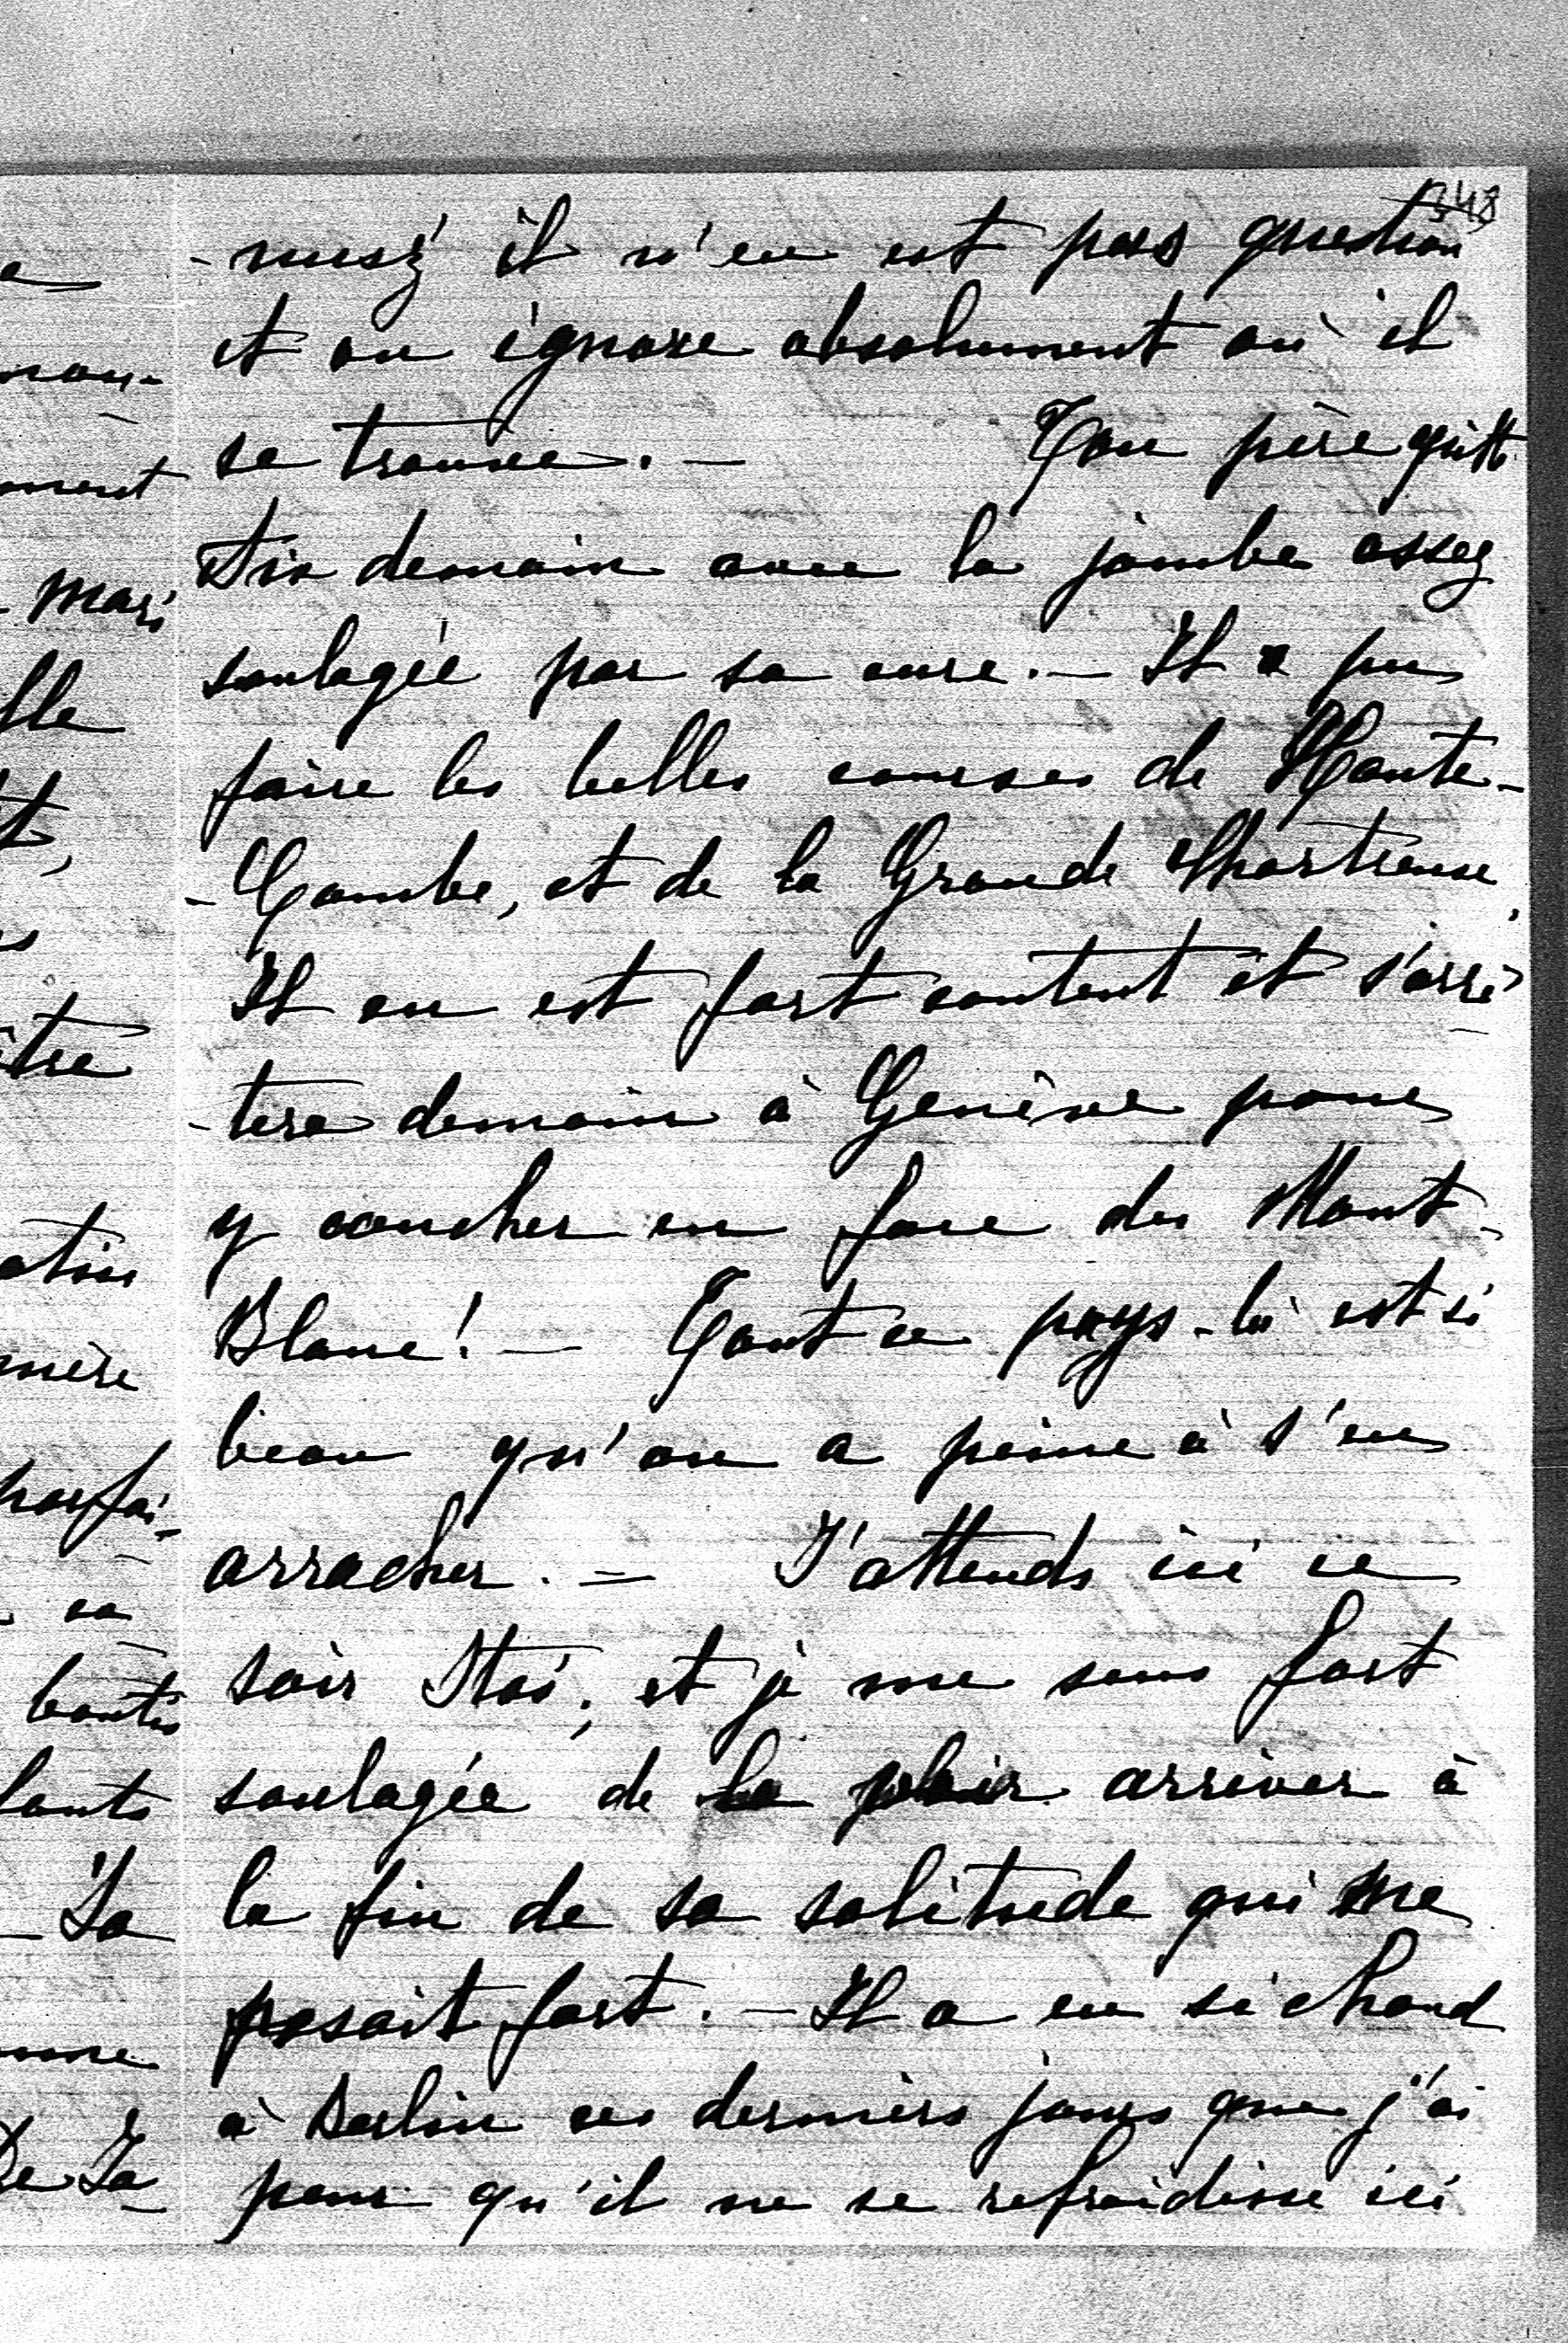 348
e -nusz' il n'en est pas question
nou- et on ignore absolument où il
ment se trouve. — Ton père quitte
Mari Aix demain avec la jambe assez
lle soulagée par sa cure. — Il a pu
t, faire les belles courses de Haute-
s -Combe, et de la Grande Chartreuse,
Il en est fort content et s'arrê-
tre -tera demain à Genève pour
ation y coucher en face du Mont-
mère Blanc! — Tout ce pays-là est si
beau qu'on a peine à s'en
parfai- arracher. — J'attends ici ce
sa soir Stas', et je me sens fort
bontés soulagée de le voir arriver à
lants la fin de sa solitude qui me
- Sa pesait fort. — Il a eu si chaud
mme à Berlin ces derniers jours que j'ai
De Sa peur qu'il ne se refroidisse ici